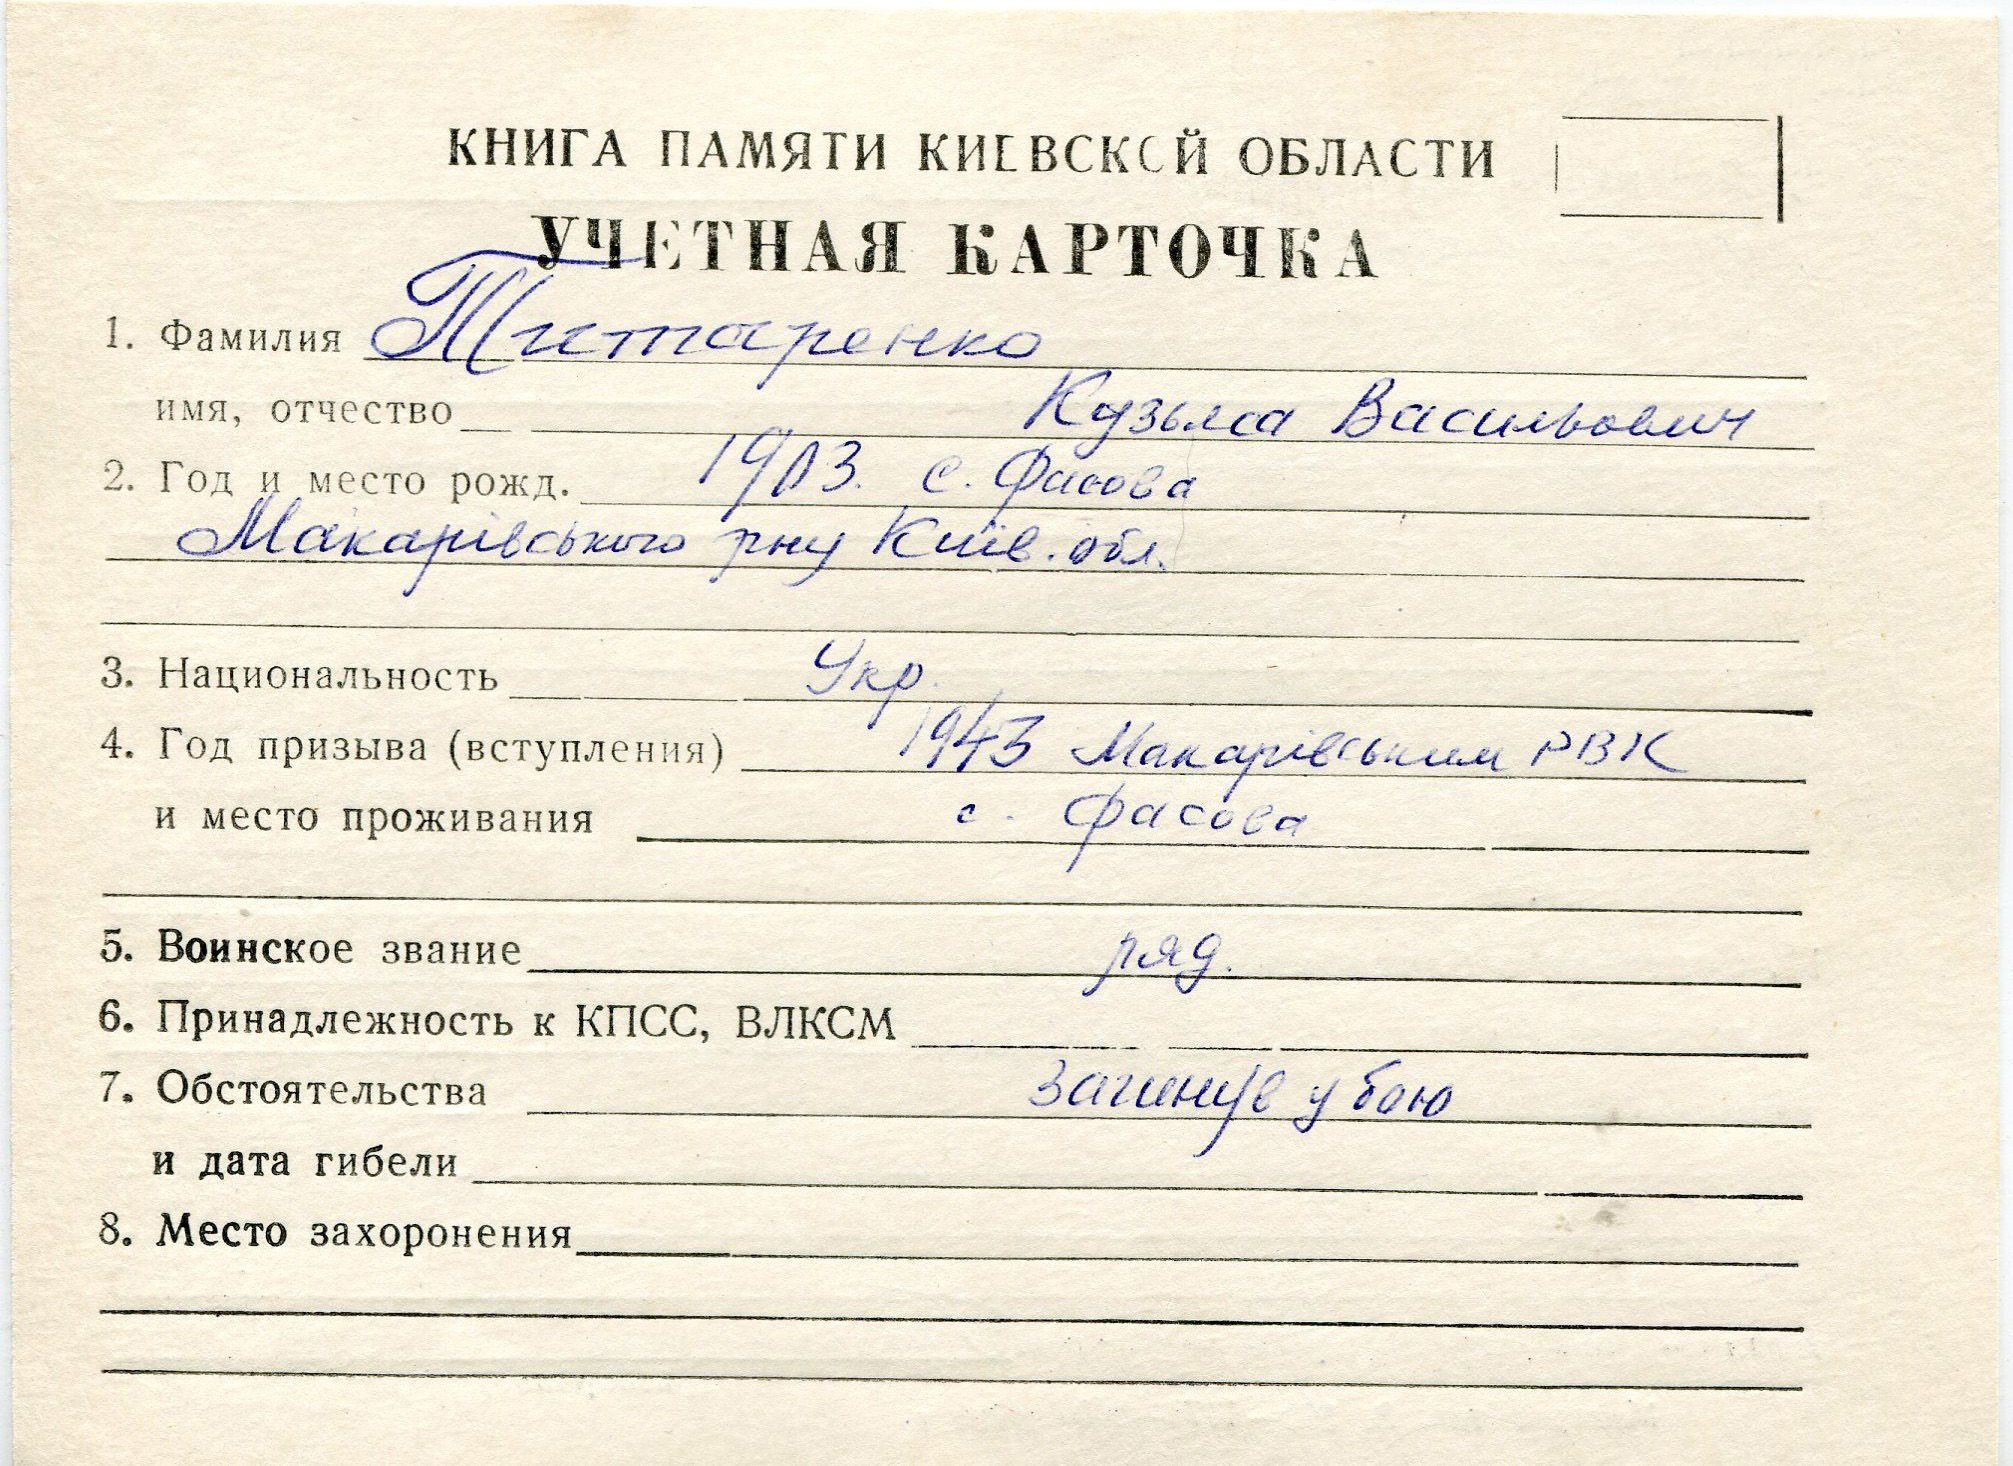 КНИГА ПАМЯТИ КИЕВСКОЙ ОБЛАСТИ
УЧЕТНАЯ КАРТОЧКА
1. Фамилия Титаренко
имя, отчество Кузьма Васильович
2. Год и место рожд. 1903. с. Фасова
Макарівського рну Київ. обл.
3. Национальность Укр.
4. Год призыва (вступления) 1943 Макарівським РВК
и место проживания с. Фасова
5. Воинское звание ряд.
6. Принадлежность к КПСС, ВЛКСМ
7. Обстоятельства загинув у бою
и дата гибели
8. Место захоронения